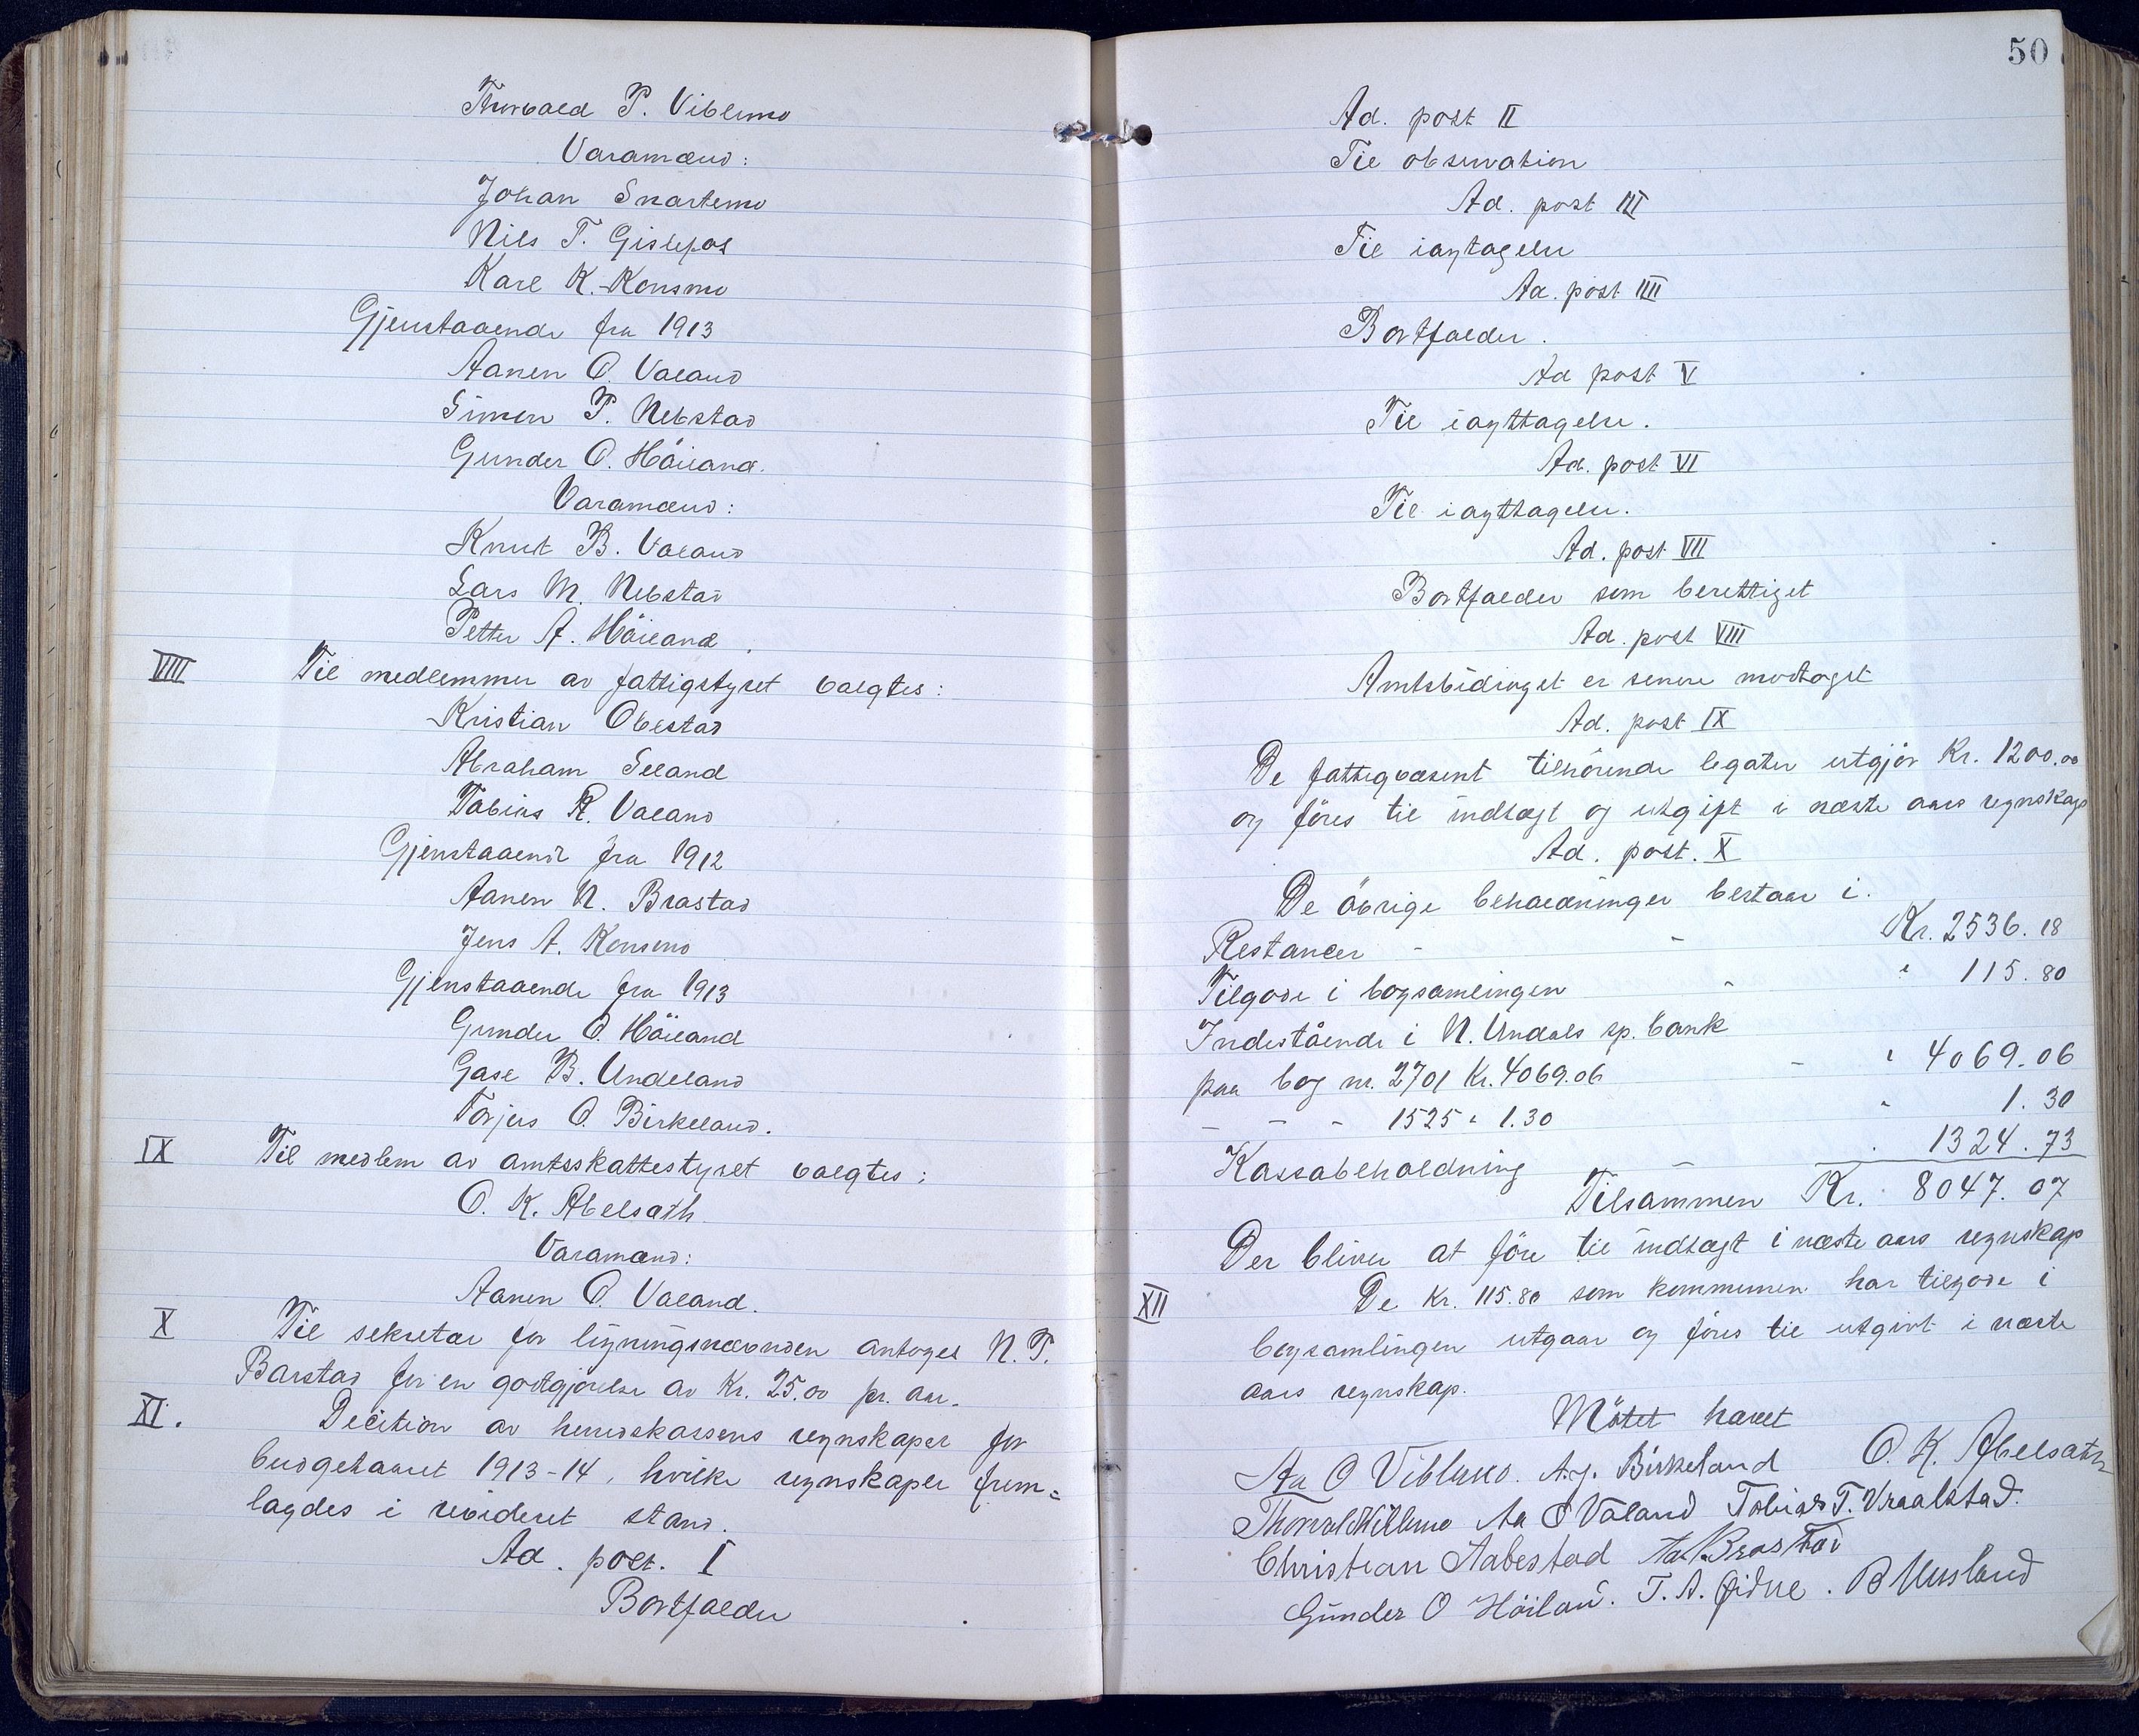 Thorvald P. Viblemo
Varamænd:
Johan Snartemo
Nils T. Gislefos
Karl K. Konsmo
Gjenstaaende fra 1913
Aanen O. Valand
Simen P. Nebstad
Gunder O. Höiland.
Varamænd:
Knut B. Valand
Lars M. Nebstad
Petter A. Höiland.
VIII Til medlemmer av fattigstyret valgtes:
Kristian Obestad
Abraham Seland
Tobias R. Valand
Gjenstaaende fra 1912
Aanen N. Brastad
Jens A. Konsmo
Gjenstaaende fra 1913
Gunder O. Höiland
Gase B. Undeland
Torjus O. Birkeland.
IX Til medlem av amtsskattestyret valgtes:
O. K. Abelsæth
Varamand:
Aanen O. Valand.
X Til sekretær for ligningsnævnden antoges N. T.
Barstad for en godtgjörelse av Kr. 25.00 pr. aar.
XI. Decition av herredskassens regnskaper for
budgetaaret 1913-14, hvilke regnskaper frem=
lagdes i revideret stand.
Ad. post. I
Bortfalder
50
Ad. post II
Til observation
Ad. post III
Til iagtagelse
Ad. post IIII
Bortfalder.
Ad post V
Til iagttagelse.
Ad. post VI
Til iagttagelse.
Ad. post VII
Bortfalder som berettiget
Ad. post VIII
Amtsbidraget er senere modtaget
Ad. post IX
De fattigvæsent tilhörende legater utgjör Kr. 1200.00
og föres til indtægt og utgift i næste aars regnskap
Ad. post. X
De övrige beholdninger bestaar i.
Restancer - - Kr. 2536.18
Tilgode i bogsamlingen - " 115.80
Indestående i N. Undals sp. bank
paa bog nr. 2701 Kr. 4069.06 - " 4069.06
- - - 1525 " 1.30 " 1.30
Kassabeholdning - . 1324.73
Tilsammen Kr. 8047.07
Der bliver at före til indtægt i næste aars regnskap
XII De Kr. 115.80 som kommunen har tilgode i
bogsamlingen utgaar og föres til utgivt i næste
aars regnskap.
Mötet hævet
Aa O Viblemo. A. J. Birkeland O. K. Abelsæth
Thorvald Viblemo Aa O Valand Tobias T. Vraalstad.
Christian Aabestad Aa. N. Brastad
Gunder O Höiland. T. A. Øidne. B Uusland